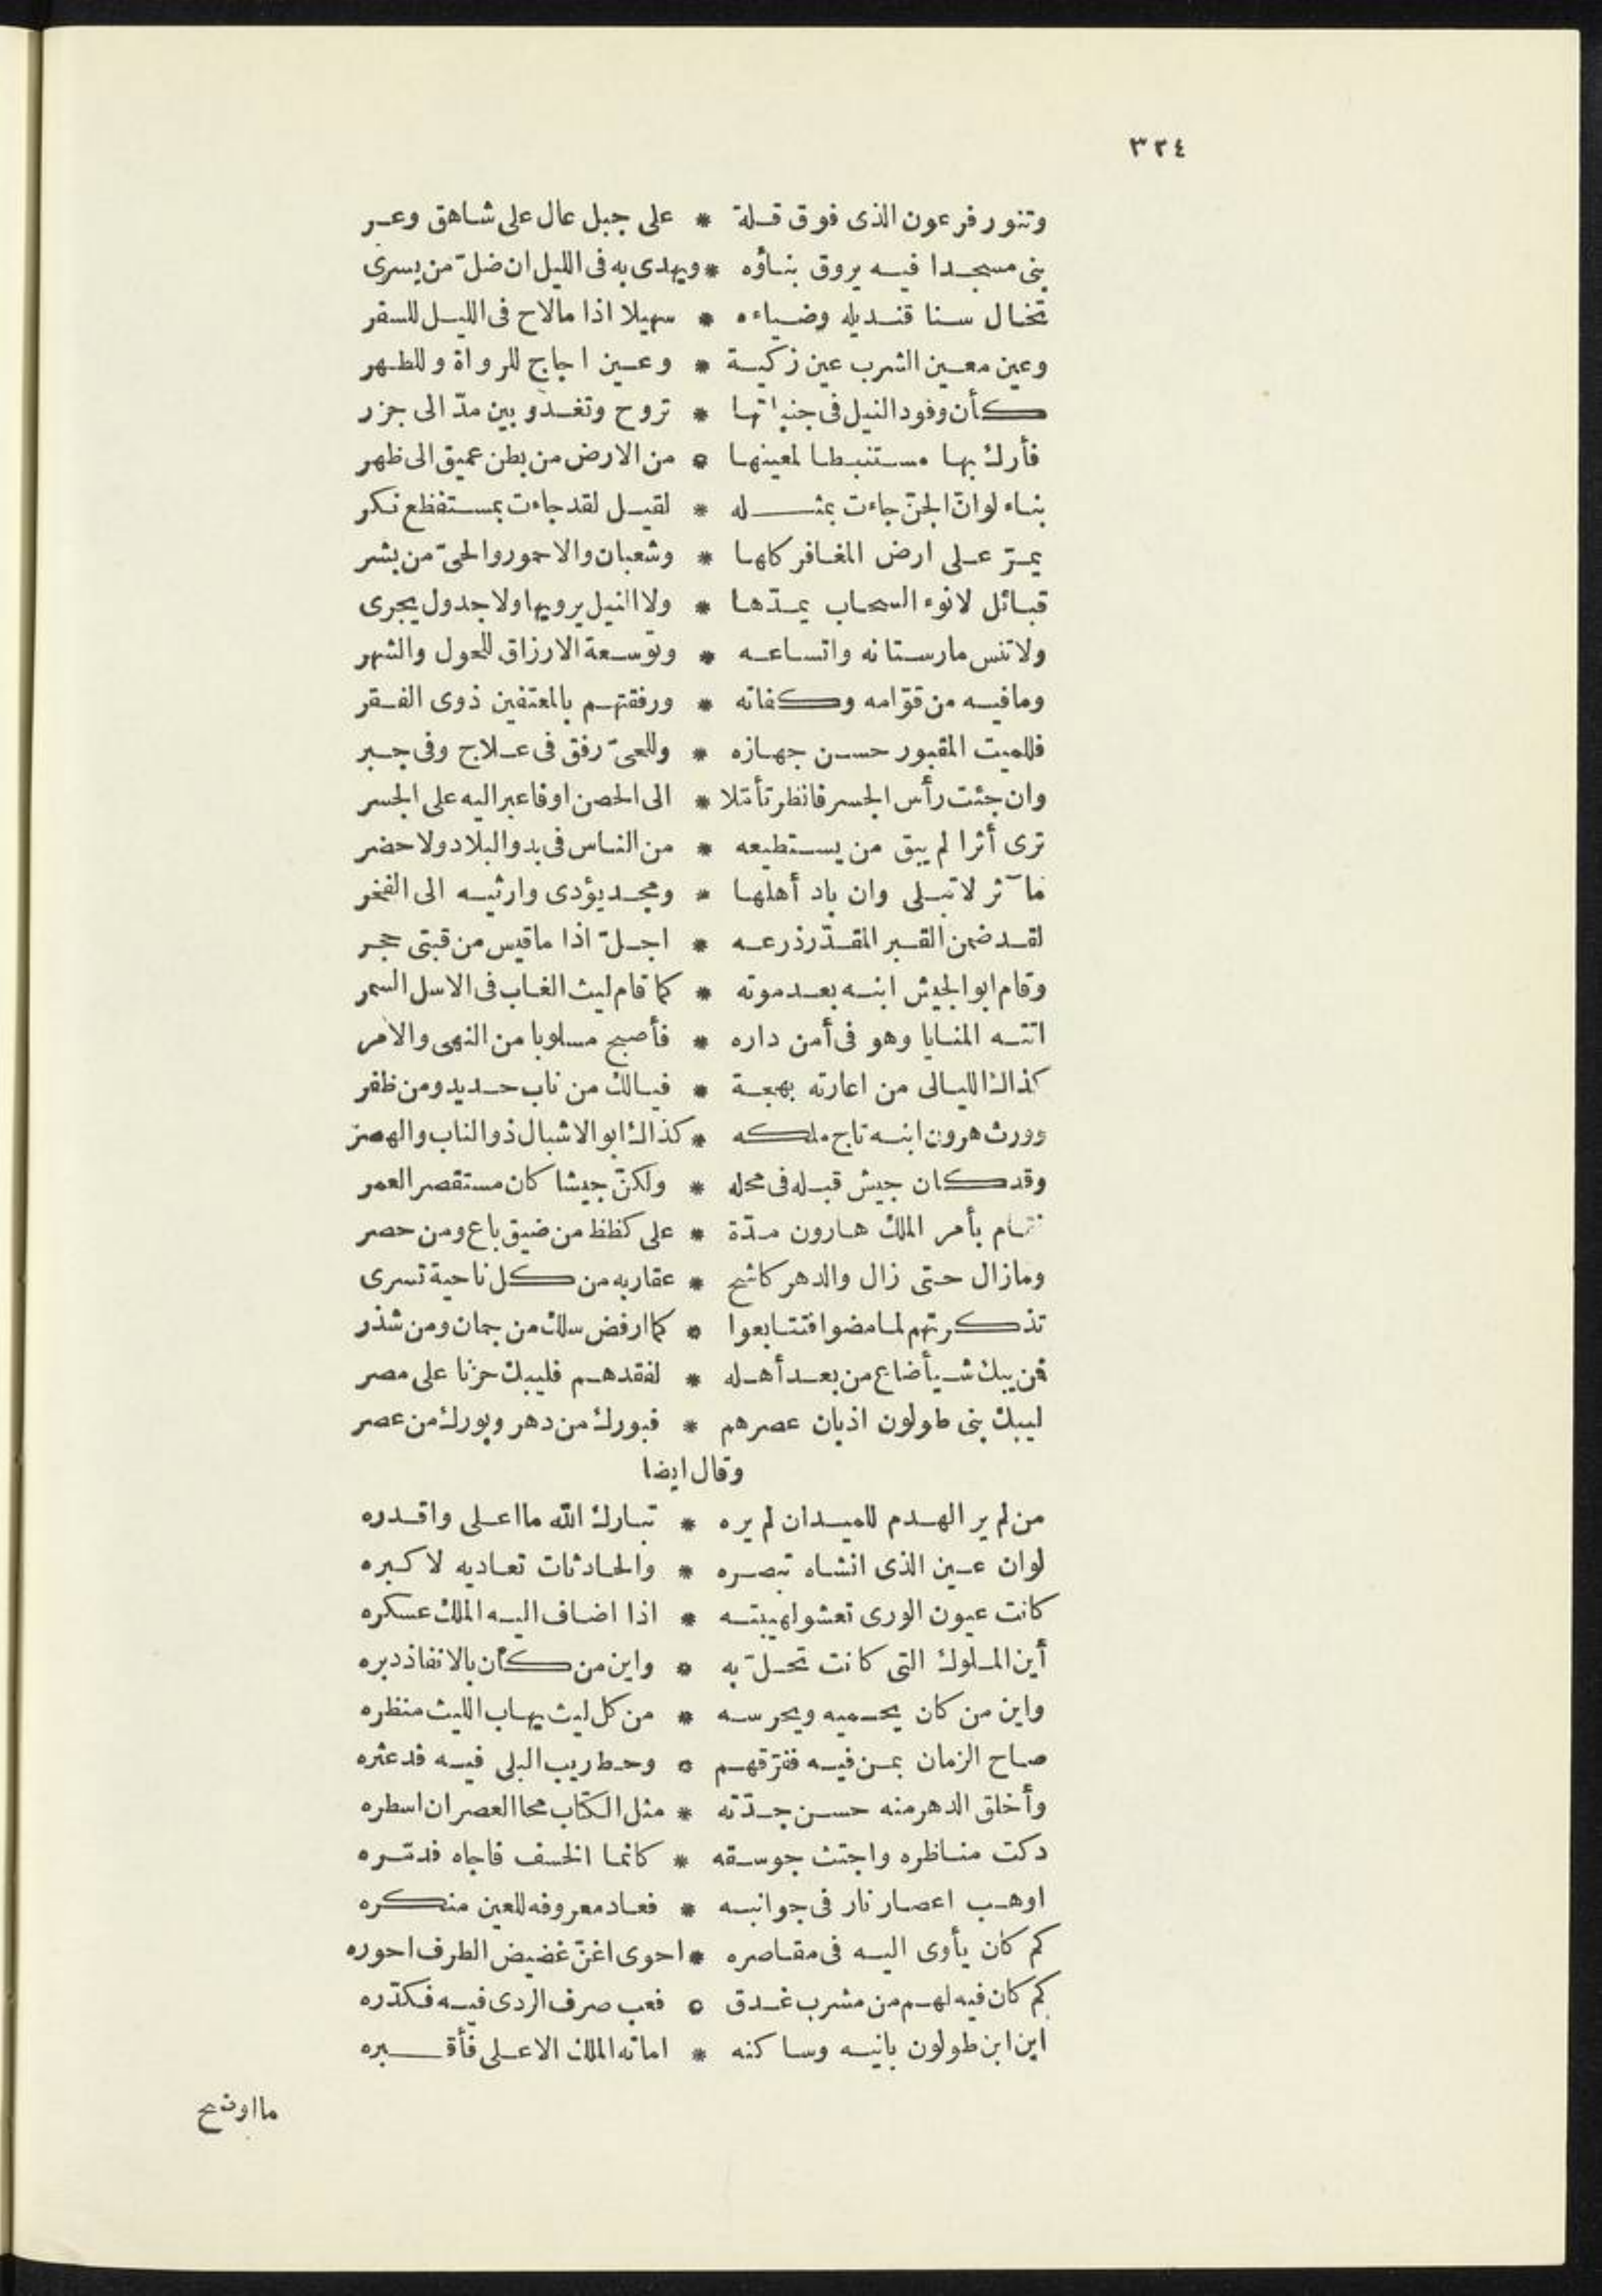 ٣٢٤
وتنور فرعون الذى فوق قلة * على جبل عال على شاهق وعر
بنى مسجدا فيه يروق بناؤه * ويهدى به فى الليل ان ضلّ من يسرى
تخال سنا قنديله وضياءه * سهيلا اذا ما لاح فى الليل للسفر
وعين معين الشرب عين زكية * وعين اجاج للرواة وللطهر
كأن وفود النيل فى جنباتها * تروح وتغدو بين مدّ الى جزر
فأرك بها مستنبطا لمعينها * من الارض من بطن عميق الى ظهر
بناء لو انّ الجنّ جاءت بمثله * لقيل لقد جاءت بمستفظع نكر
يمرّ على ارض المغافر كلها * وشعبان والاحمور والحىّ من بشر
قبائل لا نوء السحاب يمدّها * ولا النيل يرويها ولا جدول يجرى
ولا تنس مارستانه واتساعه * وتوسعة الارزاق للحول والشهر
وما فيه من قوّامه وكفاته * ورفقتهم بالمعتفين ذوى الفقر
فللميت المقبور حسن جهازه * وللحىّ رفق فى علاج وفى جبر
وان جئت رأس الجسر فانظر تأملا * الى الحصن او فاعبر اليه على الجسر
ترى أثرا لم يبق من يستطيعه * من الناس فى بدو البلاد ولا حضر
مآثر لا تبلى وان باد أهلها * ومجد يؤدى وارثيه الى الفخر
لقد ضمن القبر المقدّر ذرعه * اجلّ اذا ما قيس من قبتى حجر
وقام ابو الجيش ابنه بعد موته * كما قام ليث الغاب فى الاسل السمر
اتته المنايا وهو فى أمن داره * فأصبح مسلوبا من النهى والامر
كذاك الليالى من اعارته بهجة * فيالك من ناب حديد ومن ظفر
وورث هرون ابنه تاج ملكه * كذاك ابو الاشبال ذو الناب والهصر
وقد كان جيش قبله فى محله * ولكنّ جيشا كان مستقصر العمر
فقام بأمر الملك هارون مدّة * على كظظ من ضيق باع ومن حصر
وما زال حتى زال والدهر كاشح * عقاربه من كل ناحية تسرى
تذكرتهم لما مضوا فتتابعوا * كما ارفض سلك من جمان ومن شذر
فمن يبك شيأ ضاع من بعد أهله * لفقدهم فليبك حزنا على مصر
ليبك بنى طولون اذ بان عصرهم * فبورك من دهر وبورك من عصر
وقال ايضا
من لم ير الهدم للميدان لم يره * تبارك الله ما اعلى واقدره
لو ان عين الذى انشاه تبصره * والحادثات تعاديه لا كبره
كانت عيون الورى تعشو لهيبته * اذا اضاف اليه الملك عسكره
أين الملوك التى كانت تحلّ به * واين من كان بالانفاذ دبره
واين من كان يحميه ويحرسه * من كل ليث يهاب الليث منظره
صاح الزمان بمن فيه ففرّقهم * وحط ريب البلى فيه فدعثره
وأخلق الدهر منه حسن جدّته * مثل الكتاب محا العصران اسطره
دكت مناظره واجتث جوسقه * كانما الخسف فاجاه فدمّره
اوهب اعصار نار فى جوانبه * فعاد معروفه للعين منكره
كم كان يأوى اليه فى مقاصره * احوى اغنّ غضيض الطرف احوره
كم كان فيه لهم من مشرب غدق * فعب صرف الردى فيه فكدّره
اين ابن طولون بانيه وساكنه * اماته الملك الاعلى فأقبره
ما اوضح